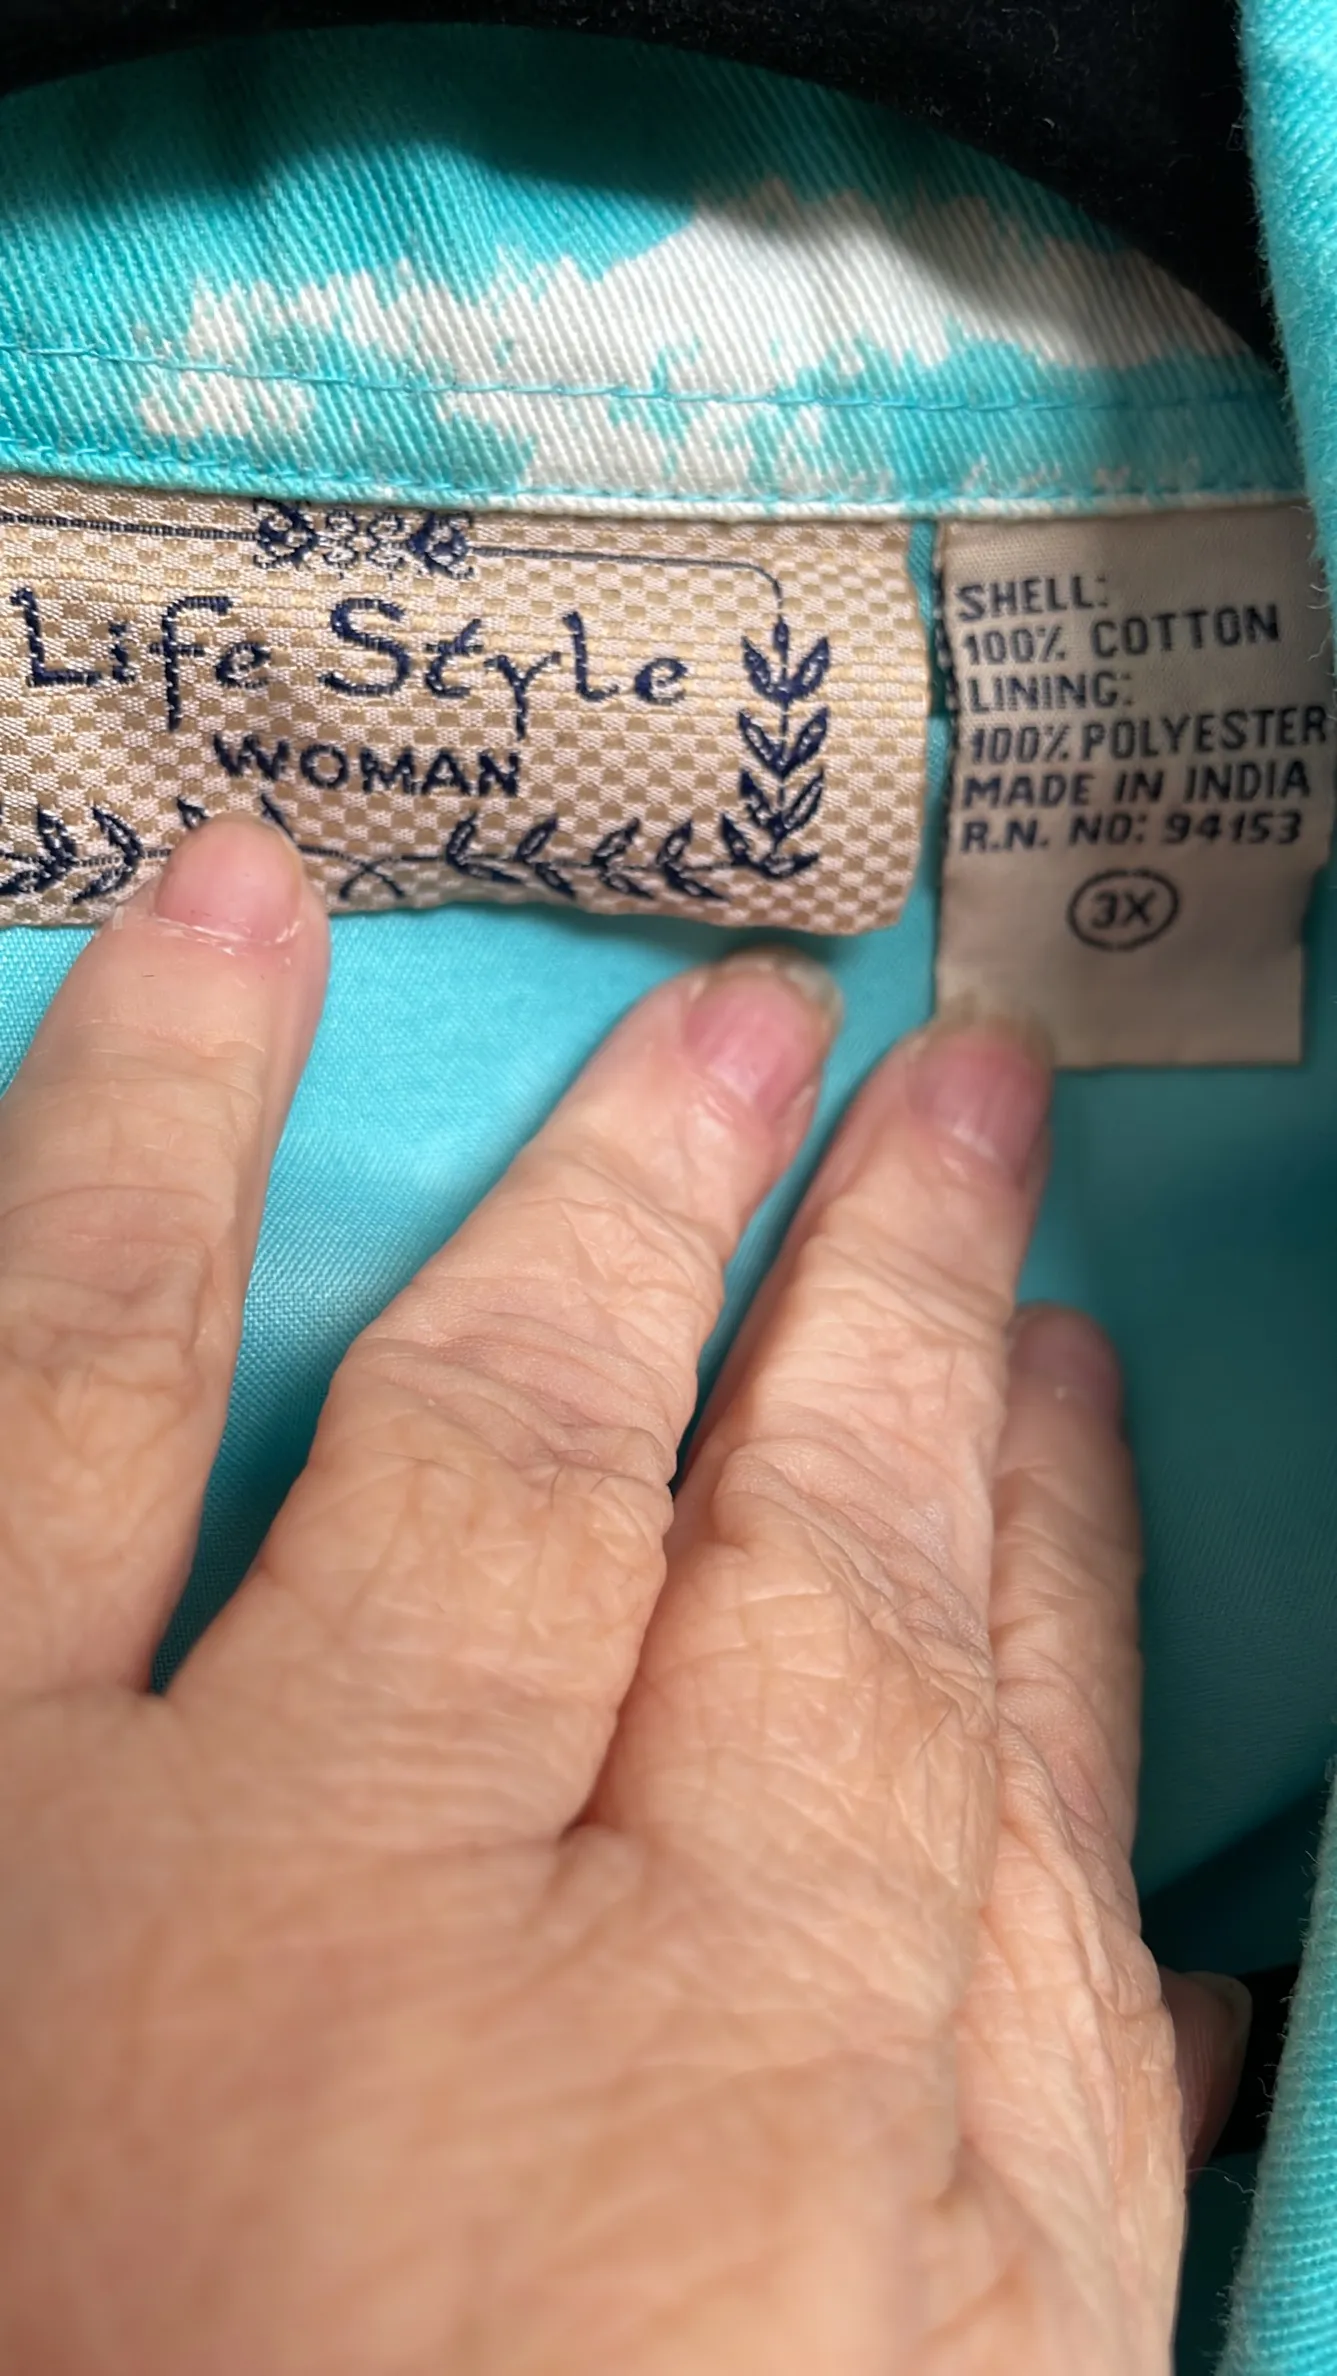 Life Style
WOMAN
SHELL:
100% COTTON
LINING:
100% POLYESTER
MADE IN INDIA
R.N. NO: 94153
3X